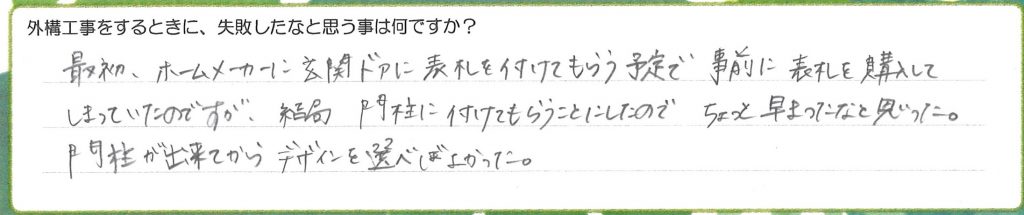 外構工事をするときに、失敗したなと思う事は何ですか？
最初、ホームメーカーに玄関ドアに表札を付けてもらう予定で 事前に表札を購入して
しまっていたのですが、結局 門柱に付けてもらうことにしたので ちょっと早まったなと思った。
門柱が出来てから デザインを選べばよかった。